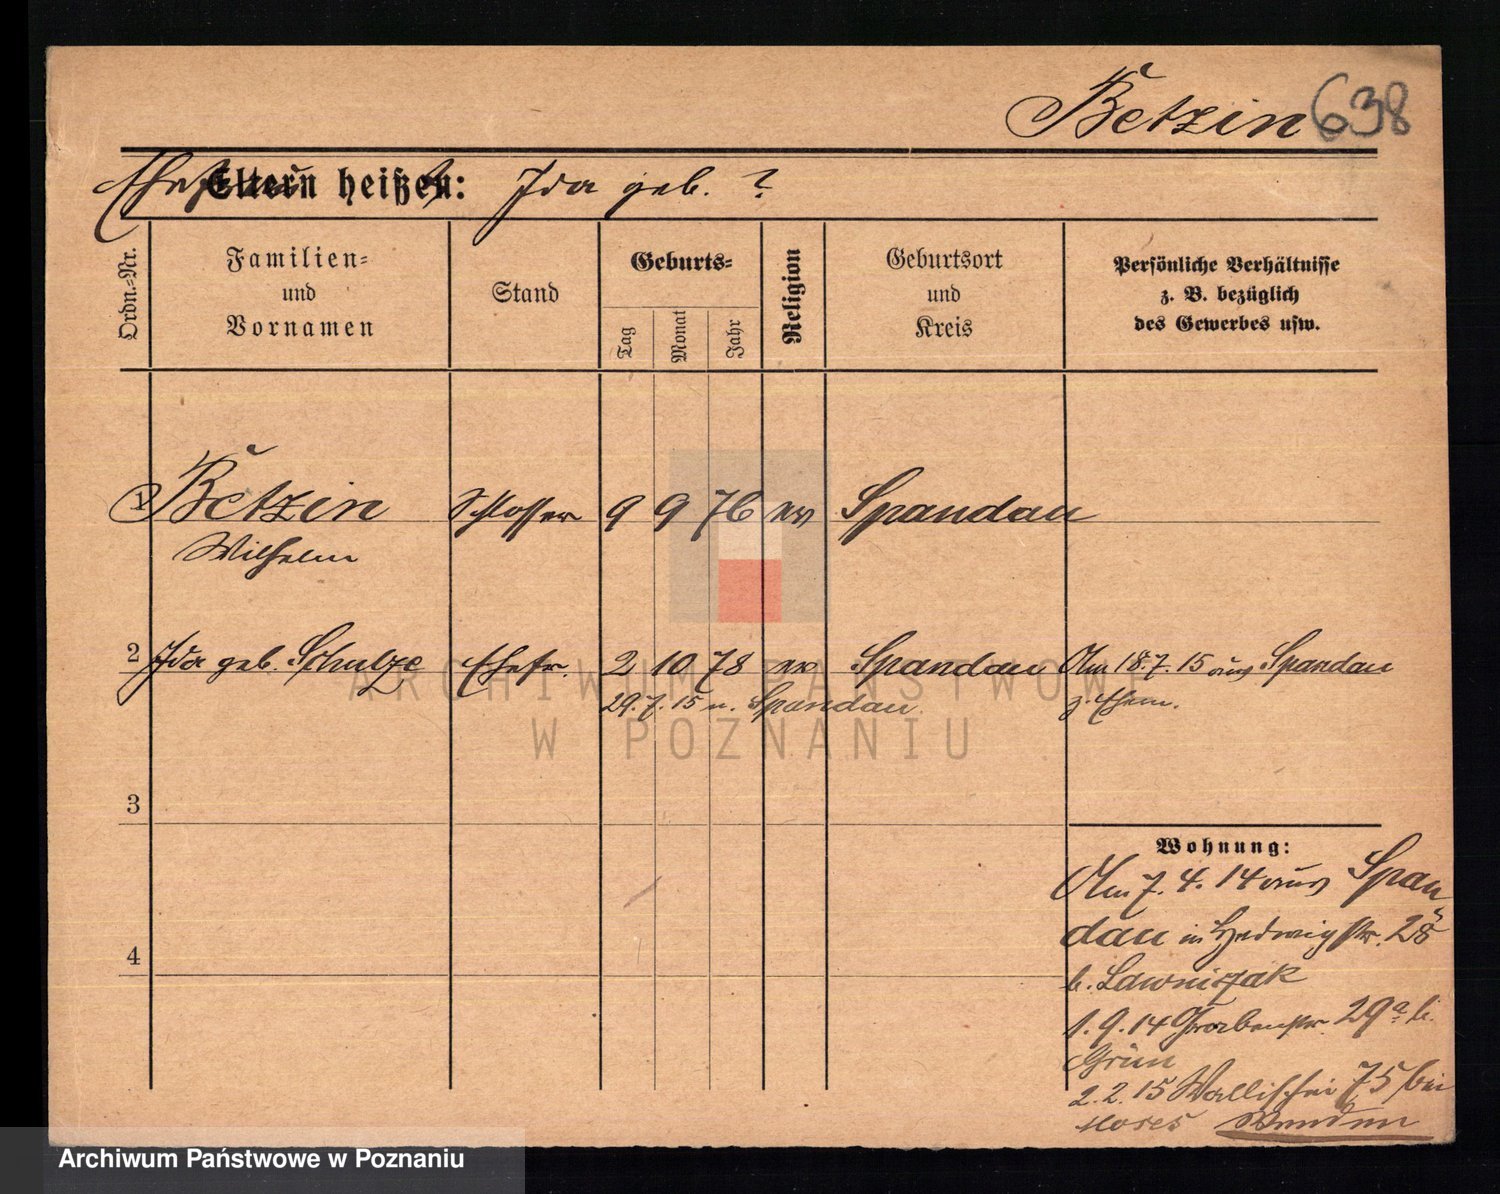 Betzin 638
Eltern heißen: Ida geb. ?
Ordn.-Nr.
Familien-
und
Vornamen
Stand
Geburts-
Tag
Monat
Jahr
Religion
Geburtsort
und
Kreis
Persönliche Verhältnisse
z. B. bezüglich
des Gewerbes usw.
1 Betzin Schlosser 9 9 76 ev Spandau
Wilhelm
2 Ida geb. Schulze Ehefr. 2 10 78 ev Spandau Am 18.7.15 aus Spandau
29.7.15 n. Spandau. z. Ehem.
3
4
Wohnung:
Am 7. 4. 14 aus Span
dau in Hedwigstr. 28
b. Lawniczak
1.9.14 Grabenstr. 29a b.
Grün
2.2.15 Wallischei 75 bei
Moses
ARCHIWUM PAŃSTWOWE
W POZNANIU
Archiwum Państwowe w Poznaniu